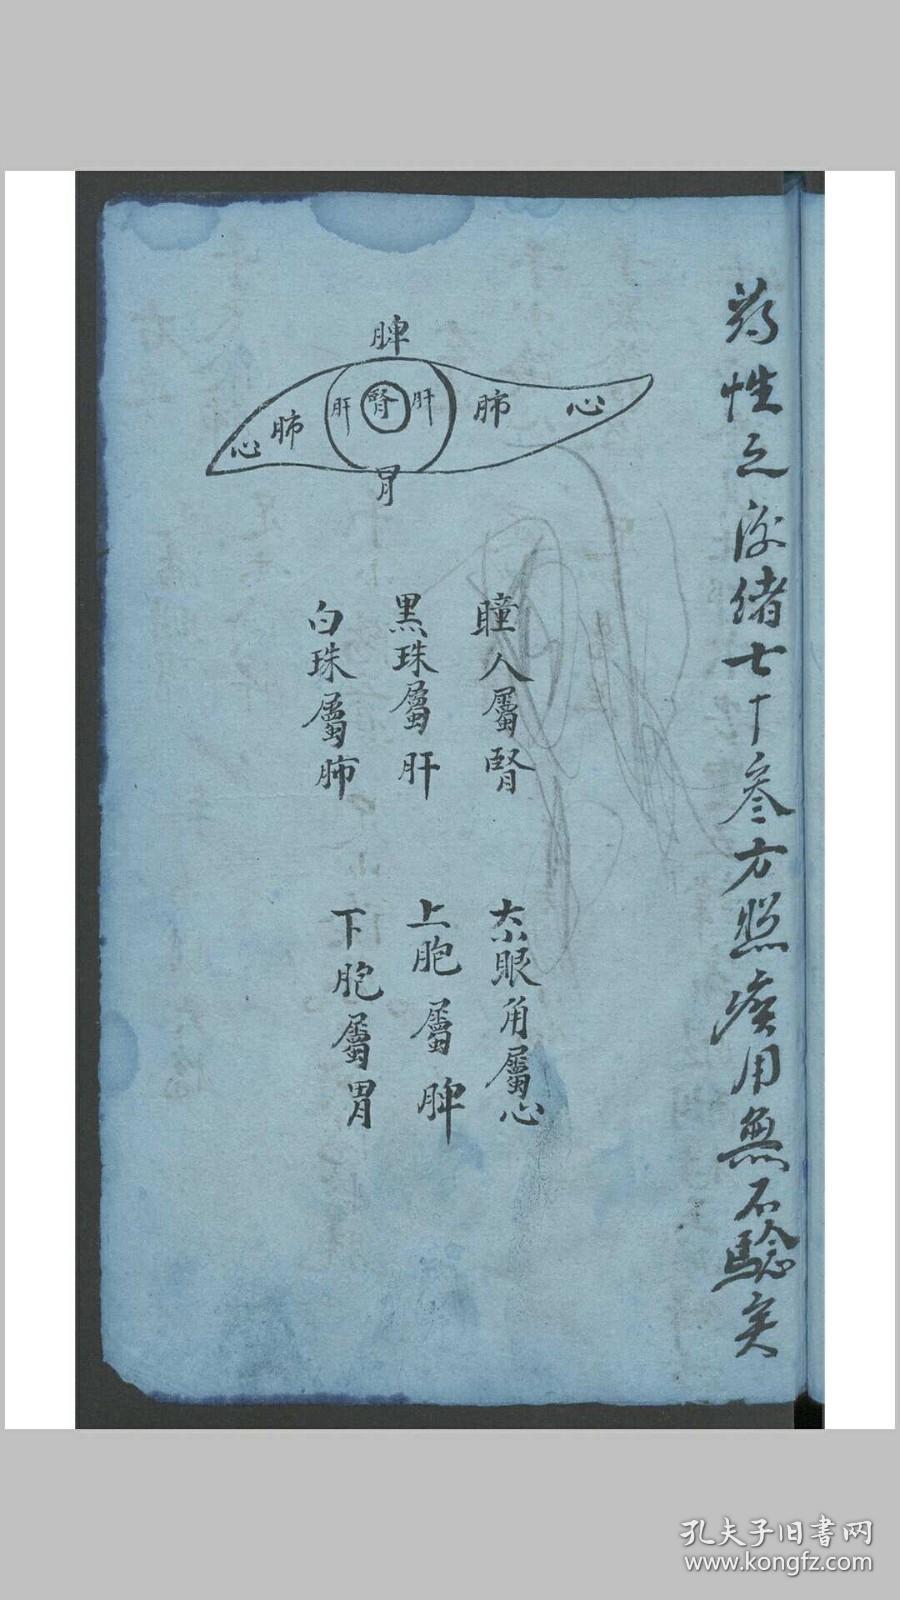 药性之後绪士十叁方照症用無不驗矣
脾
心 肺 肝 腎 肝 肺 心
胃
瞳人屬腎
黑珠屬肝
白珠屬肺
大小眼角屬心
上胞屬脾
下胞屬胃
孔夫子旧书网
www.kongfz.com